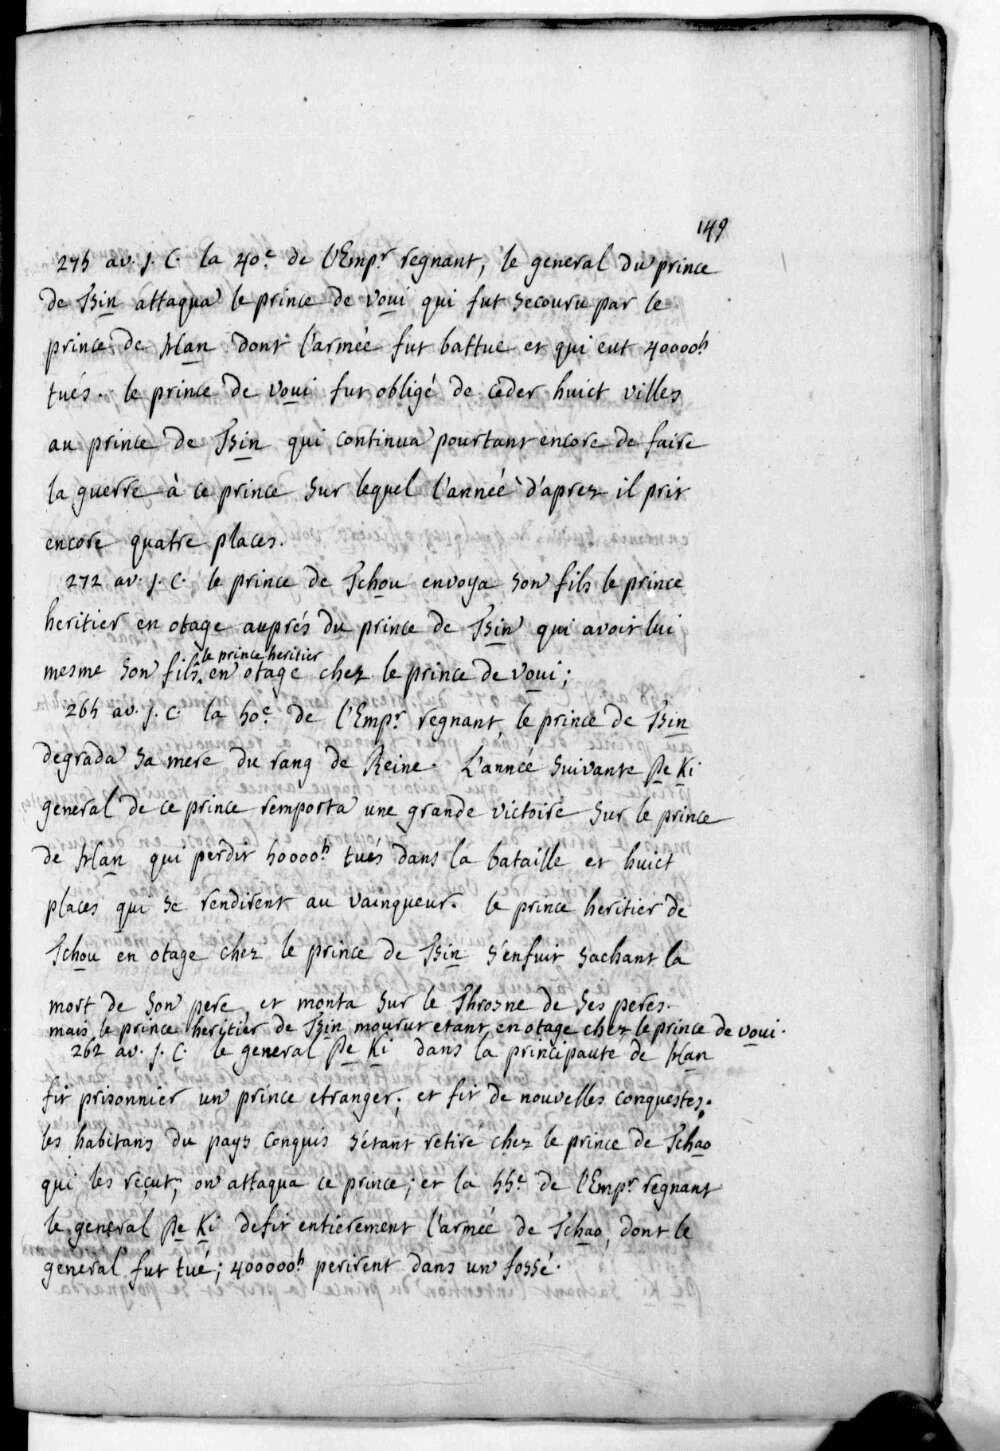 149
275 av. J. C. la 40.e de l'Emp.r regnant, le general du prince
de Tsin attaqua le prince de voui qui fut secouru par le
prince de Han dont l'armée fut battue et qui eut 40000.h
tués. le prince de voui fut obligé de ceder huict villes
au prince de Tsin qui continua pourtant encore de faire
la guerre à ce prince sur lequel l'année d'aprez il prit
encore quatre places.
272 av. J. C. le prince de Tchou envoya son fils le prince
heritier en otage auprés du prince de Tsin qui avoit lui
mesme son fils le prince heritier en otage chez le prince de voui;
265 av. J. C. la 50.e de l'Emp.r regnant, le prince de Tsin
degrada sa mere du rang de Reine. L'année suivante Pe Ki
general de ce prince remporta une grande victoire sur le prince
de Han qui perdit 50000.h tués dans la bataille et huict
places qui se rendirent au vainqueur. le prince heritier de
Tchou en otage chez le prince de Tsin s'enfuit sachant la
mort de son pere et monta sur le Throsne de ses peres.
mais le prince heritier de Tsin mourut etant en otage chez le prince de voui.
262 av. J. C. le general Pe Ki dans la principauté de Han
fit prisonnier un prince etranger; et fit de nouvelles conquestes.
les habitans du pays conquis s'etant retiré chez le prince de Tchao
qui les reçut; on attaqua ce prince; et la 55.e de l'Emp.r regnant
le general Pe Ki defit entierement l'armée de Tchao, dont le
general fut tué; 400000.h perirent dans un fossé.